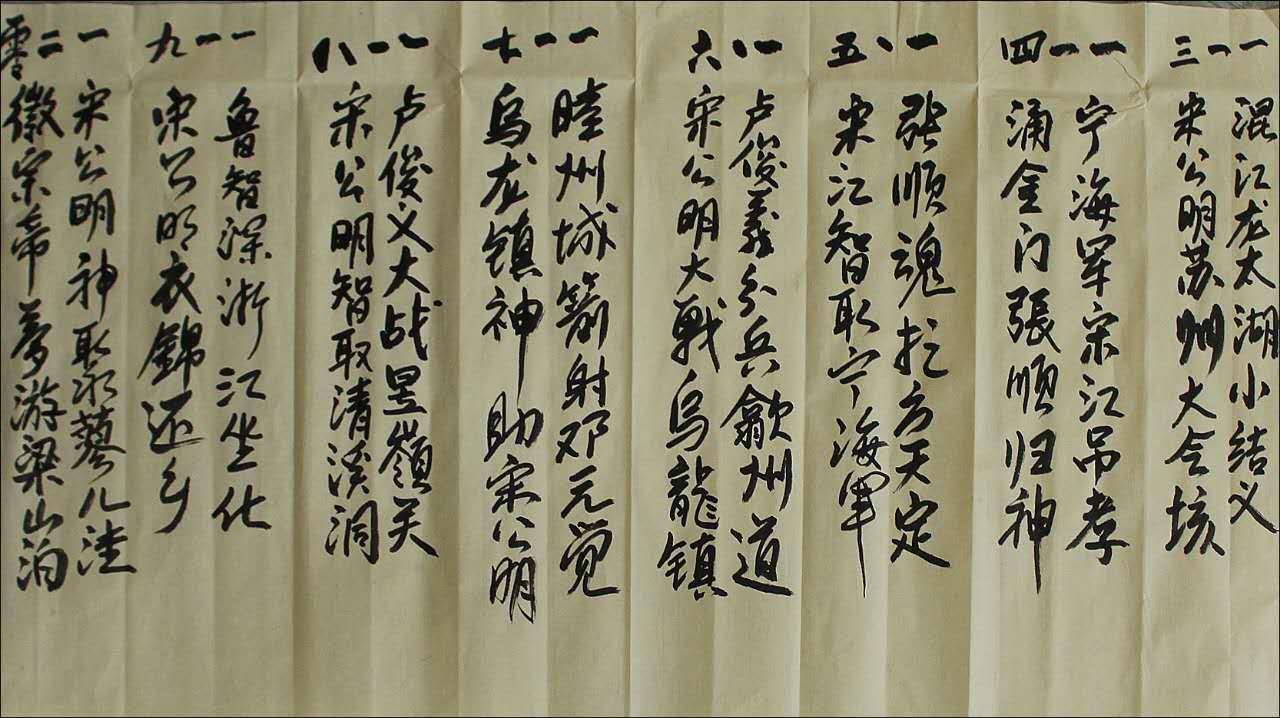 一一三
混江龙太湖小结义
宋公明苏州大会垓
一一四
宁海军宋江吊孝
涌金门張順归神
一一五
张順魂捉方天定
宋江智取宁海軍
一一六
卢俊義分兵歙州道
宋公明大戰烏龍镇
一一七
睦州城箭射邓元觉
乌龙镇神助宋公明
一一八
卢俊义大战昱嶺关
宋公明智取清溪洞
一一九
鲁智深浙江坐化
宋公明衣錦还乡
一二零
宋公明神聚蓼儿洼
徽宗帝夢游梁山泊